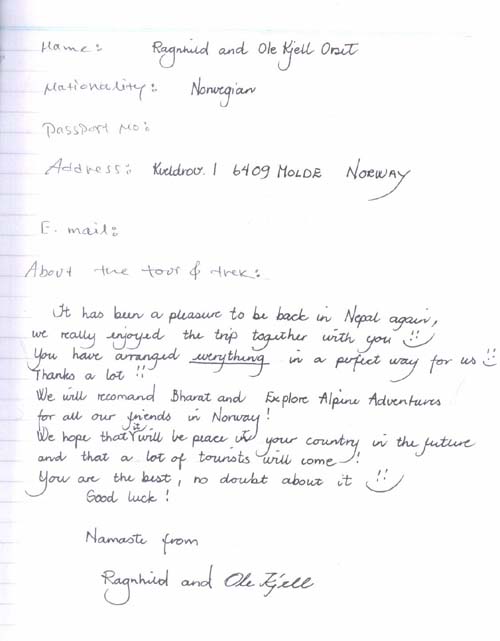 Name: Ragnhild and Ole Kjell Orset
Nationality: Norwegian
Passport No:
Address: Kveldrov. 1 6409 MOLDE NORWAY
E. mail:
About the tour & trek:
It has been a pleasure to be back in Nepal again,
we really enjoyed the trip together with you !!
You have arranged everything in a perfect way for us !!
Thanks a lot !!
We will recomand Bharat and Explore Alpine Adventures
for all our friends in Norway!
We hope that it will be peace in your country in the future
and that a lot of tourists will come!
You are the best, no doubt about it !!
Good luck!
Namaste from
Ragnhild and Ole Kjell